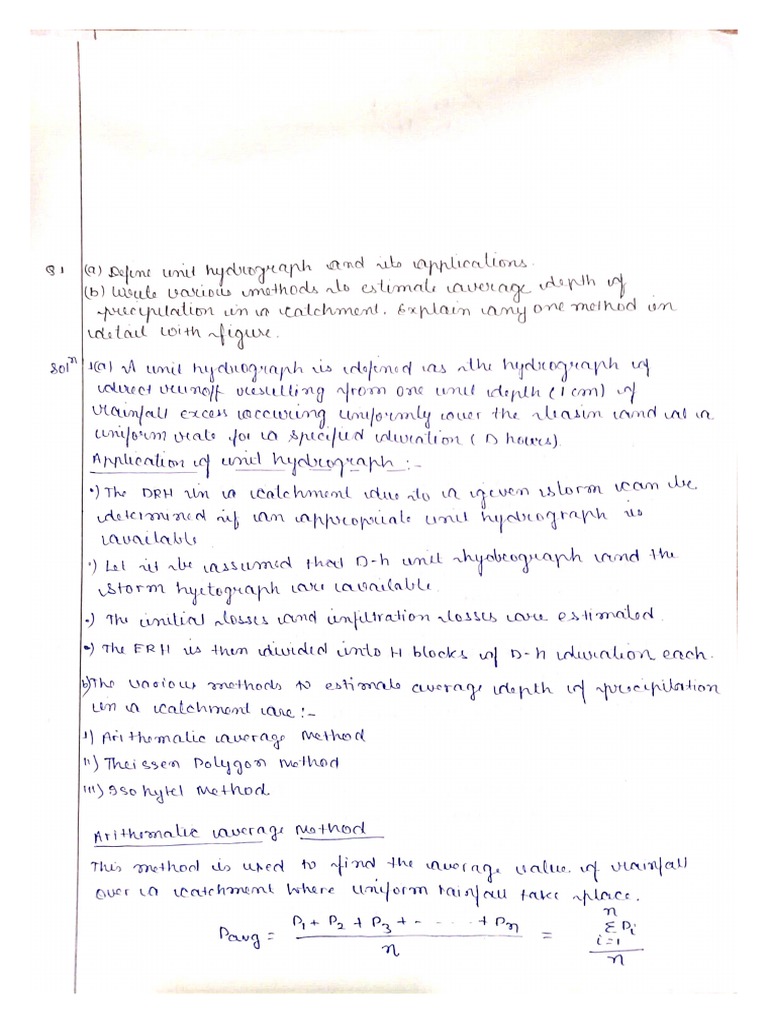 Q1 (a) Define unit hydrograph and its applications.
(b) Write various methods to estimate average depth of
precipitation in a catchment. Explain any one method in
detail with figure.
Solⁿ 1(a) A unit hydrograph is defined as the hydrograph of
direct runoff resulting from one unit depth (1 cm) of
rainfall excess occuring uniformly over the basin and at a
uniform rate for a specified duration (D hours)
Application of unit hydrograph :-
•) The DRH in a catchment due to a given storm can be
determined if an appropriate unit hydrograph is
available
•) Let it be assumed that D-h unit hydrograph and the
storm hyetograph are available.
•) The initial losses and infiltration losses are estimated.
•) The ERH is then divided into H blocks of D-h duration each.
b) The various methods to estimate average depth of precipitation
in a catchment are :-
I) Arithematic average Method
II) Theissen Polygon Method
III) Isohytel Method.
Arithematic average Method
This method is used to find the average value of rainfall
over a catchment where uniform rainfall take place.
Pavg = (P₁ + P₂ + P₃ + - . . . . + Pₙ) / n = (Σ Pᵢ, i=1 to n) / n